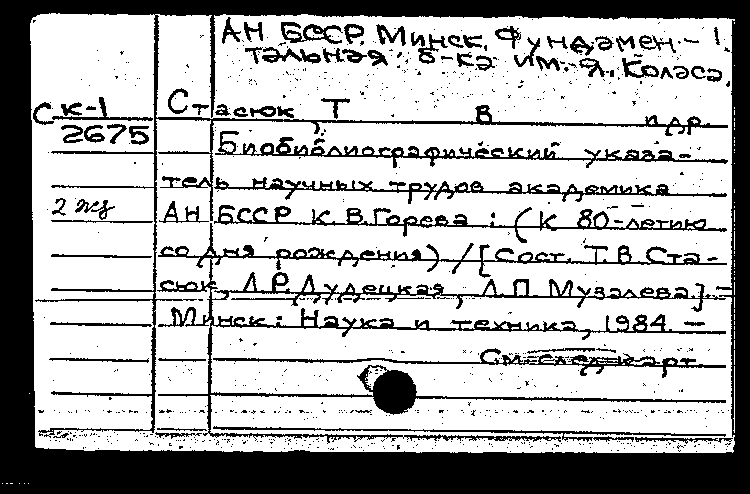 АН БССР. Минск. Фундамен-
тальная б-ка им. Я. Коласа.
СК-1
2675
Стасюк, Т В и др.
Биобиблиографический указа-
тель научных трудов академика
2 экз
АН БССР К.В.Горева : (К 80-летию
со дня рождения) / [Сост. Т.В.Ста-
сюк, Л.Р.Дудецкая, Л.П.Музалева]. -
Минск: Наука и техника, 1984. -
См. след. карт.